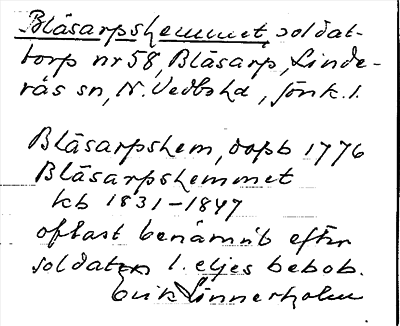 Blåsarpshemmet, soldat-
torp nr 58, Blåsarp, Linde-
rås sn, N. Vedbo hd, Jönk. l.
Blåsarpshem, dopb 1776
Blåsarpshemmet
kb 1831-1847
oftast benämnt efter
soldaten l. eljes bebob.
Erik Linnerholm